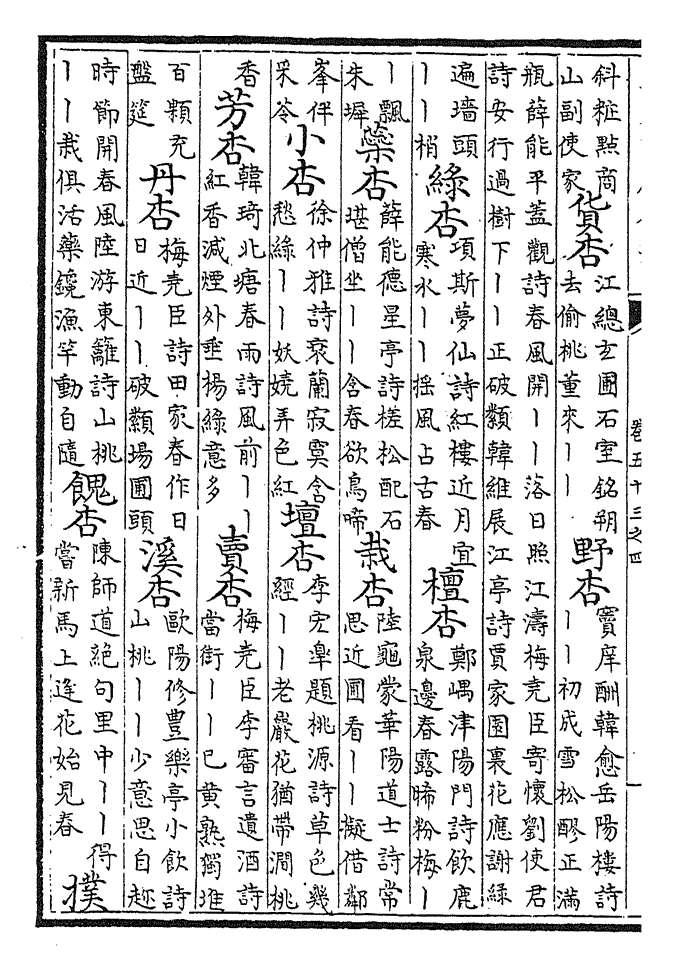 斜粧點商
山副使家
貨杏
江總玄圃石室銘朔
去偷桃董來丨丨
野杏
竇庠酬韓愈岳陽樓詩
丨丨初成雪松醪正滿
瓶薛能平蓋觀詩春風開丨丨落日照江濤梅堯臣寄懷劉使君
詩安行過樹下丨丨正破纇韓維展江亭詩賈家園裏花應謝綠
遍墻頭
丨丨梢
綠杏
項斯夢仙詩紅樓近月宜
寒水丨丨搖風占古春
檀杏
鄭嵎津陽門詩飲鹿
泉邊春露晞粉梅丨
丨飄
朱墀
藥杏
薛能德星亭詩槎松配石
堪僧坐丨丨含春欲鳥啼
栽杏
陸龜蒙華陽道士詩常
思近圃看丨丨擬借鄰
峯伴
采苓
小杏
徐仲雅詩衰蘭寂寞含
愁綠丨丨妖嬈弄色紅
壇杏
李宏臯題桃源詩草色幾
經丨丨老巖花猶帶澗桃
香
芳杏
韓琦北塘春雨詩風前丨丨
紅香減煙外垂楊綠意多
賣杏
梅堯臣李審言遺酒詩
當街丨丨已黃熟獨堆
百顆充
盤筵
丹杏
梅堯臣詩田家春作日
日近丨丨破纇場圃頭
溪杏
歐陽修豐樂亭小飲詩
山桃丨丨少意思自趂
時節開春風陸游東籬詩山桃
丨丨栽俱活藥鏡漁竿動自隨
餽杏
陳師道絕句里中丨丨得
嘗新馬上逢花始見春
撲
卷五十三之四